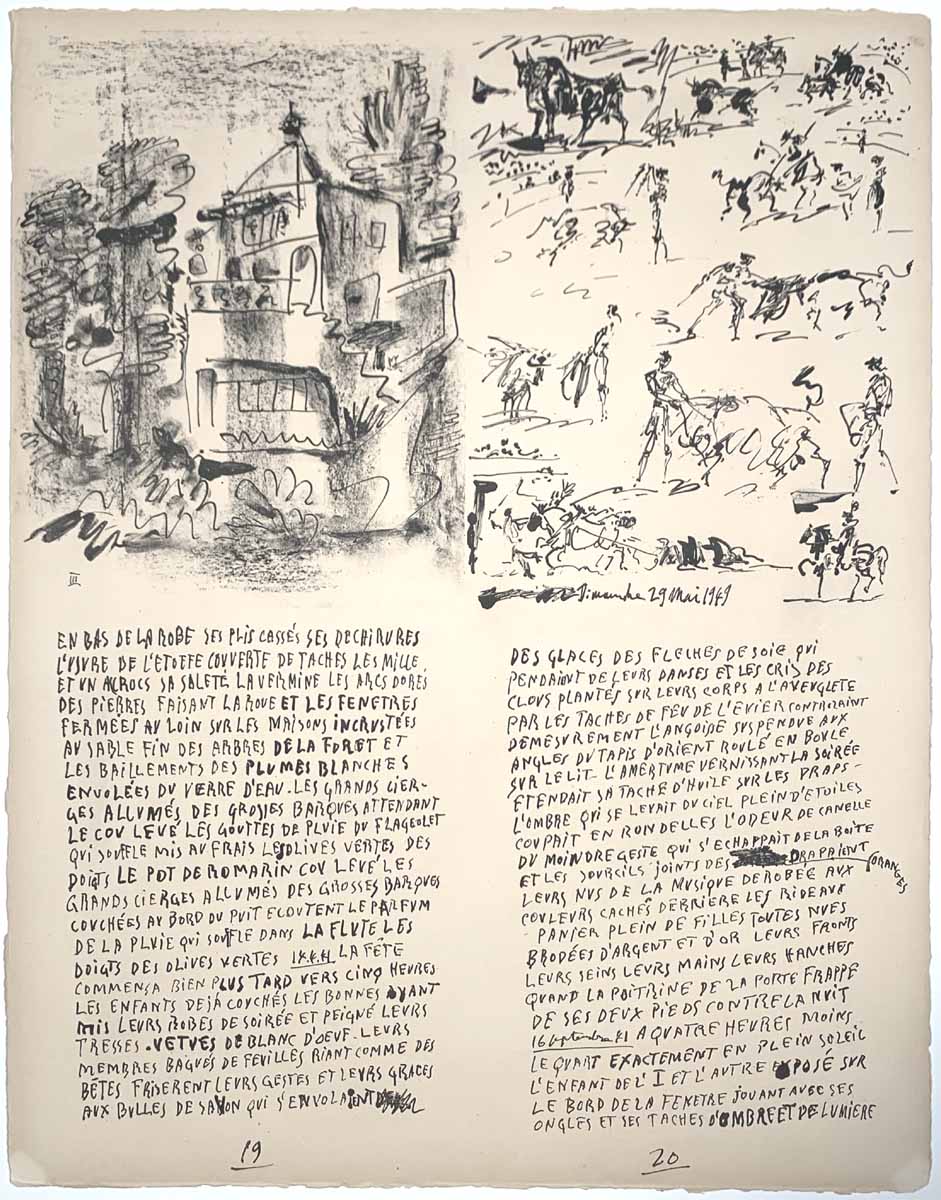 Dimanche 29 Mai 1949
III
EN BAS DE LA ROBE SES PLIS CASSÉS SES DECHIRURES
L'USURE DE L'ETOFFE COUVERTE DE TACHES LES MILLE
ET UN ACCROCS SA SALETÉ LA VERMINE LES ARCS DORÉS
DES PIERRES FAISANT LA ROUE ET LES FENETRES
FERMÉES AU LOIN SUR LES MAISONS INCRUSTÉES
AU SABLE FIN DES ARBRES DE LA FORET ET
LES BAILLEMENTS DES PLUMES BLANCHES
ENVOLÉES DU VERRE D'EAU. LES GRANDS CIER-
GES ALLUMÉS DES GROSSES BARQUES ATTENDANT
LE COU LEVÉ LES GOUTTES DE PLUIE DU FLAGEOLET
QUI SOUFFLE MIS AU FRAIS LES OLIVES VERTES DES
DOIGTS LE POT DE ROMARIN COU LEVÉ LES
GRANDS CIERGES ALLUMÉS DES GROSSES BARQUES
COUCHÉES AU BORD DU PUIT ECOUTENT LE PARFUM
DE LA PLUIE QUI SOUFFLE DANS LA FLUTE LES
DOIGTS DES OLIVES VERTES LA FÊTE
COMMENSA BIEN PLUS TARD VERS CINQ HEURES
LES ENFANTS DEJÁ COUCHÉS LES BONNES AYANT
MIS LEURS ROBES DE SOIRÉE ET PEIGNÉ LEURS
TRESSES. VETUES DE BLANC D'OEUF. LEURS
MEMBRES BAGUÉS DE FEUILLES RIANT COMME DES
BÊTES FRISERENT LEURS GESTES ET LEURS GRACES
AUX BULLES DE SAVON QUI S'ENVOLAIENT
19
DES GLACES DES FLECHES DE SOIE QUI
PENDAIENT DE LEURS DANSES ET LES CRIS DES
CLOUS PLANTÉS SUR LEURS CORPS A L'AVEUGLETE
PAR LES TACHES DE FEU DE L'EVIER CONTROLAINT
DEMESUREMENT L'ANGOISE SUSPENDUE AUX
ANGLES DU TAPIS D'ORIENT ROULÉ EN BOULE
SUR LE LIT - L'AMERTUME VERNISSANT LA SOIRÉE
ETENDAIT SA TACHE D'HUILE SUR LES DRAPS -
L'OMBRE QUI SE LEVAIT DU CIEL PLEIN D'ETOILES
COUPAIT EN RONDELLES L'ODEUR DE CANELLE
DU MOINDRE GESTE QUI S'ECHAPPAIT DE LA BOITE
ET LES SOURCILS JOINTS DES ORANGES DRAPAIENT
LEURS NUS DE LA MUSIQUE DEROBÉE AUX
COULEURS CACHÉS DERRIERE LES RIDEAUX
PANIER PLEIN DE FILLES TOUTES NUES
BRODÉES D'ARGENT ET D'OR LEURS FRONTS
LEURS SEINS LEURS MAINS LEURS HANCHES
QUAND LA POITRINE DE LA PORTE FRAPPE
DE SES DEUX PIEDS CONTRE LA NUIT
16 septembre 41 A QUATRE HEURES MOINS
LE QUART EXACTEMENT EN PLEIN SOLEIL
L'ENFANT DE L'I ET L'AUTRE EXPOSÉ SUR
LE BORD DE LA FENETRE JOUANT AVEC SES
ONGLES ET SES TACHES D'OMBRE ET DE LUMIERE
20